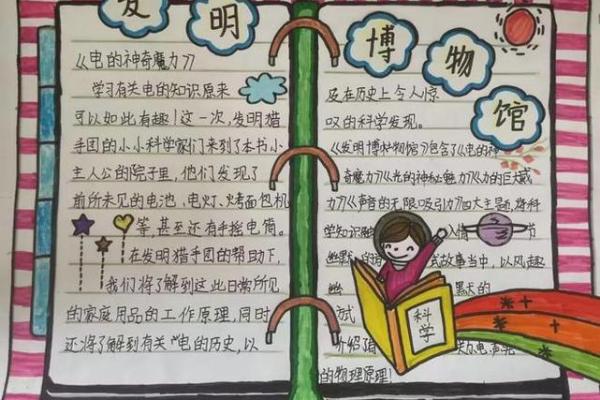 发明
博物馆
《电的神奇魔力》
学习有关电的知识原来
可以如此有趣!这一次,发明猎
手团的小小科学家们来到了本书小
主人公的院子里,他们发现了
前所未见的电池、电灯、烤面包机
等,甚至还有手摇电筒。
在发明猎手团的帮助下,
我们将了解到这此日常所见
的家庭用品的工作原理,同时
还将了解到有关"电的历史,以
及在历史上令人惊
叹的科学发现。
《发明博物馆》包含了《电的神
奇魔力》《光的神秘魅力》《力的巨大威
力》《声音的无限吸引力》四大主题,将科
学知识融 入情 节
幽默的 式故事当中,以风趣
的
试
介绍 电、声
的物理原理!
科学